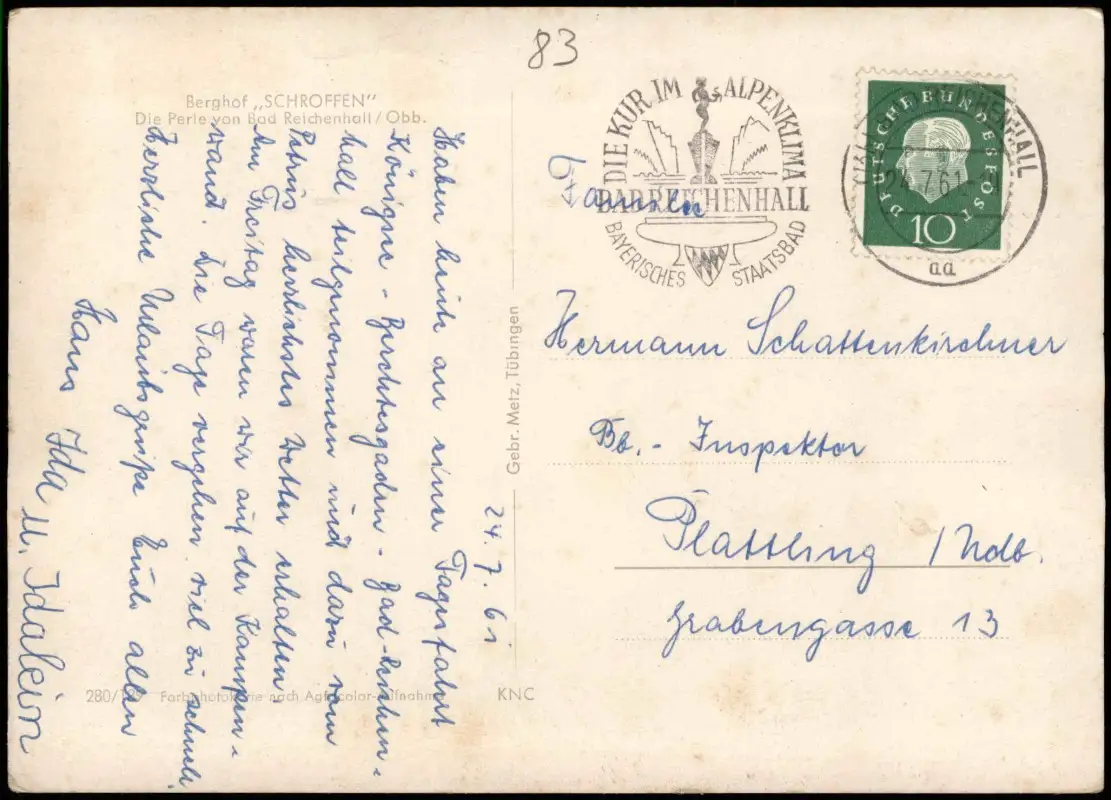 83
Berghof „SCHROFFEN"
Die Perle von Bad Reichenhall/Obb.
24.7.61
Haben heute an einer Tagesfahrt
Königsee - Berchtesgaden - Bad-Reichen-
hall teilgenommen und dazu vom
Petrus herrlichstes Wetter erhalten.
Am Freitag waren wir auf der Kampen-
wand. Die Tage vergehen viel zu schnell.
Herzliche Urlaubsgrüße Euch allen
Hans Ida u. Idalein
280/ Farbphotokarte nach Agfacolor-Aufnahme
KNC
Gebr. Metz, Tübingen
DIE KUR IM ALPENKLIMA
BAD REICHENHALL
BAYERISCHES STAATSBAD
DEUTSCHE BUNDESPOST
10
REICHENHALL
24.7.61
aa
Familie
Hermann Schattenkirchner
Bb.- Inspektor
Plattling /Ndb.
Grabengasse 13